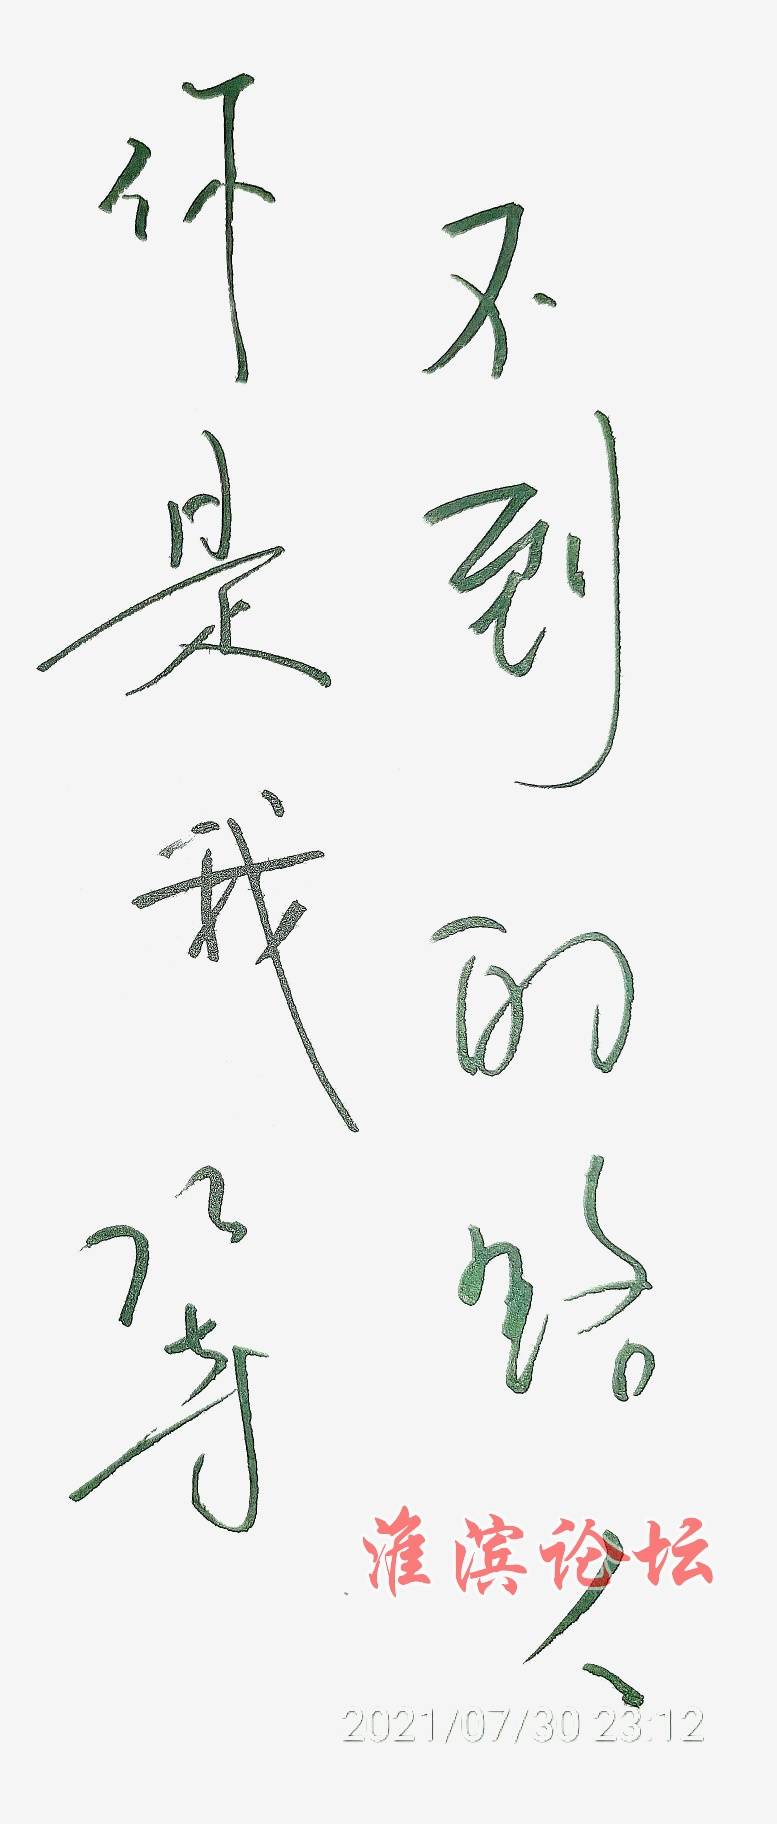 你是我等
不到的路人
淮滨论坛
2021/07/30 23:12